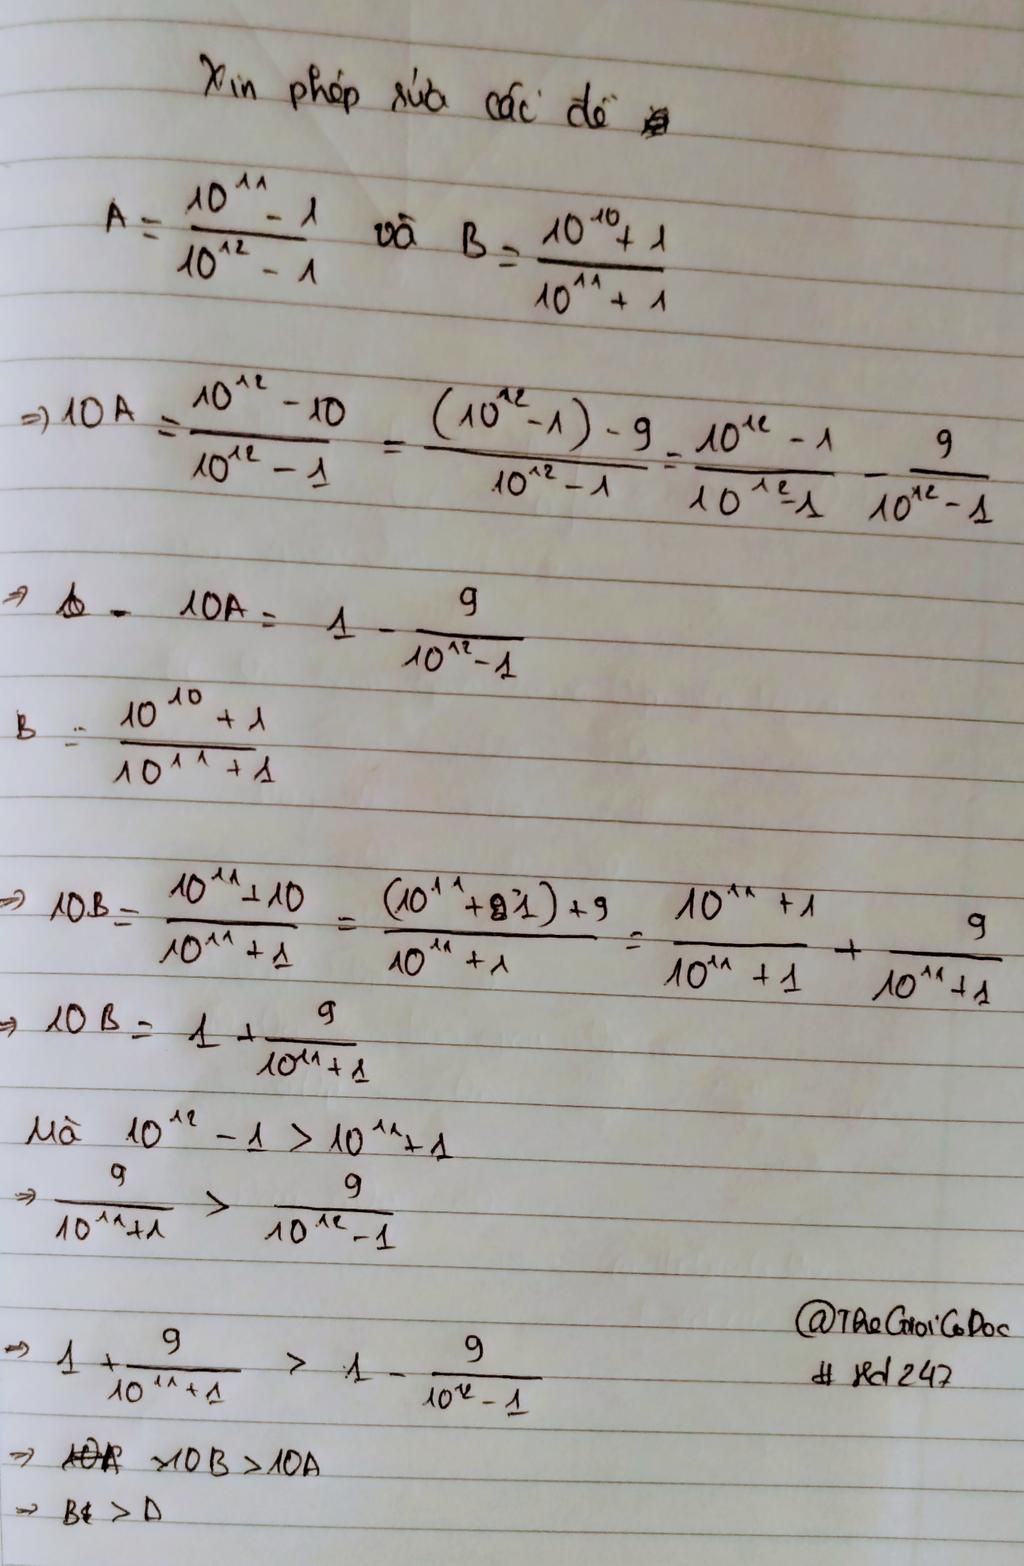 Xin phép sửa các đề
A = \frac{10^{11} - 1}{10^{12} - 1} và B = \frac{10^{10} + 1}{10^{11} + 1}
=> 10A = \frac{10^{12} - 10}{10^{12} - 1} = \frac{(10^{12} - 1) - 9}{10^{12} - 1} = \frac{10^{12} - 1}{10^{12} - 1} - \frac{9}{10^{12} - 1}
=> - 10A = 1 - \frac{9}{10^{12} - 1}
B = \frac{10^{10} + 1}{10^{11} + 1}
=> 10B = \frac{10^{11} + 10}{10^{11} + 1} = \frac{(10^{11} + 1) + 9}{10^{11} + 1} = \frac{10^{11} + 1}{10^{11} + 1} + \frac{9}{10^{11} + 1}
=> 10B = 1 + \frac{9}{10^{11} + 1}
Mà 10^{12} - 1 > 10^{11} + 1
=> \frac{9}{10^{11} + 1} > \frac{9}{10^{12} - 1}
=> 1 + \frac{9}{10^{11} + 1} > 1 - \frac{9}{10^{12} - 1}
@TheGioiCoDoc
# xd247
=> 10B > 10A
=> B > A